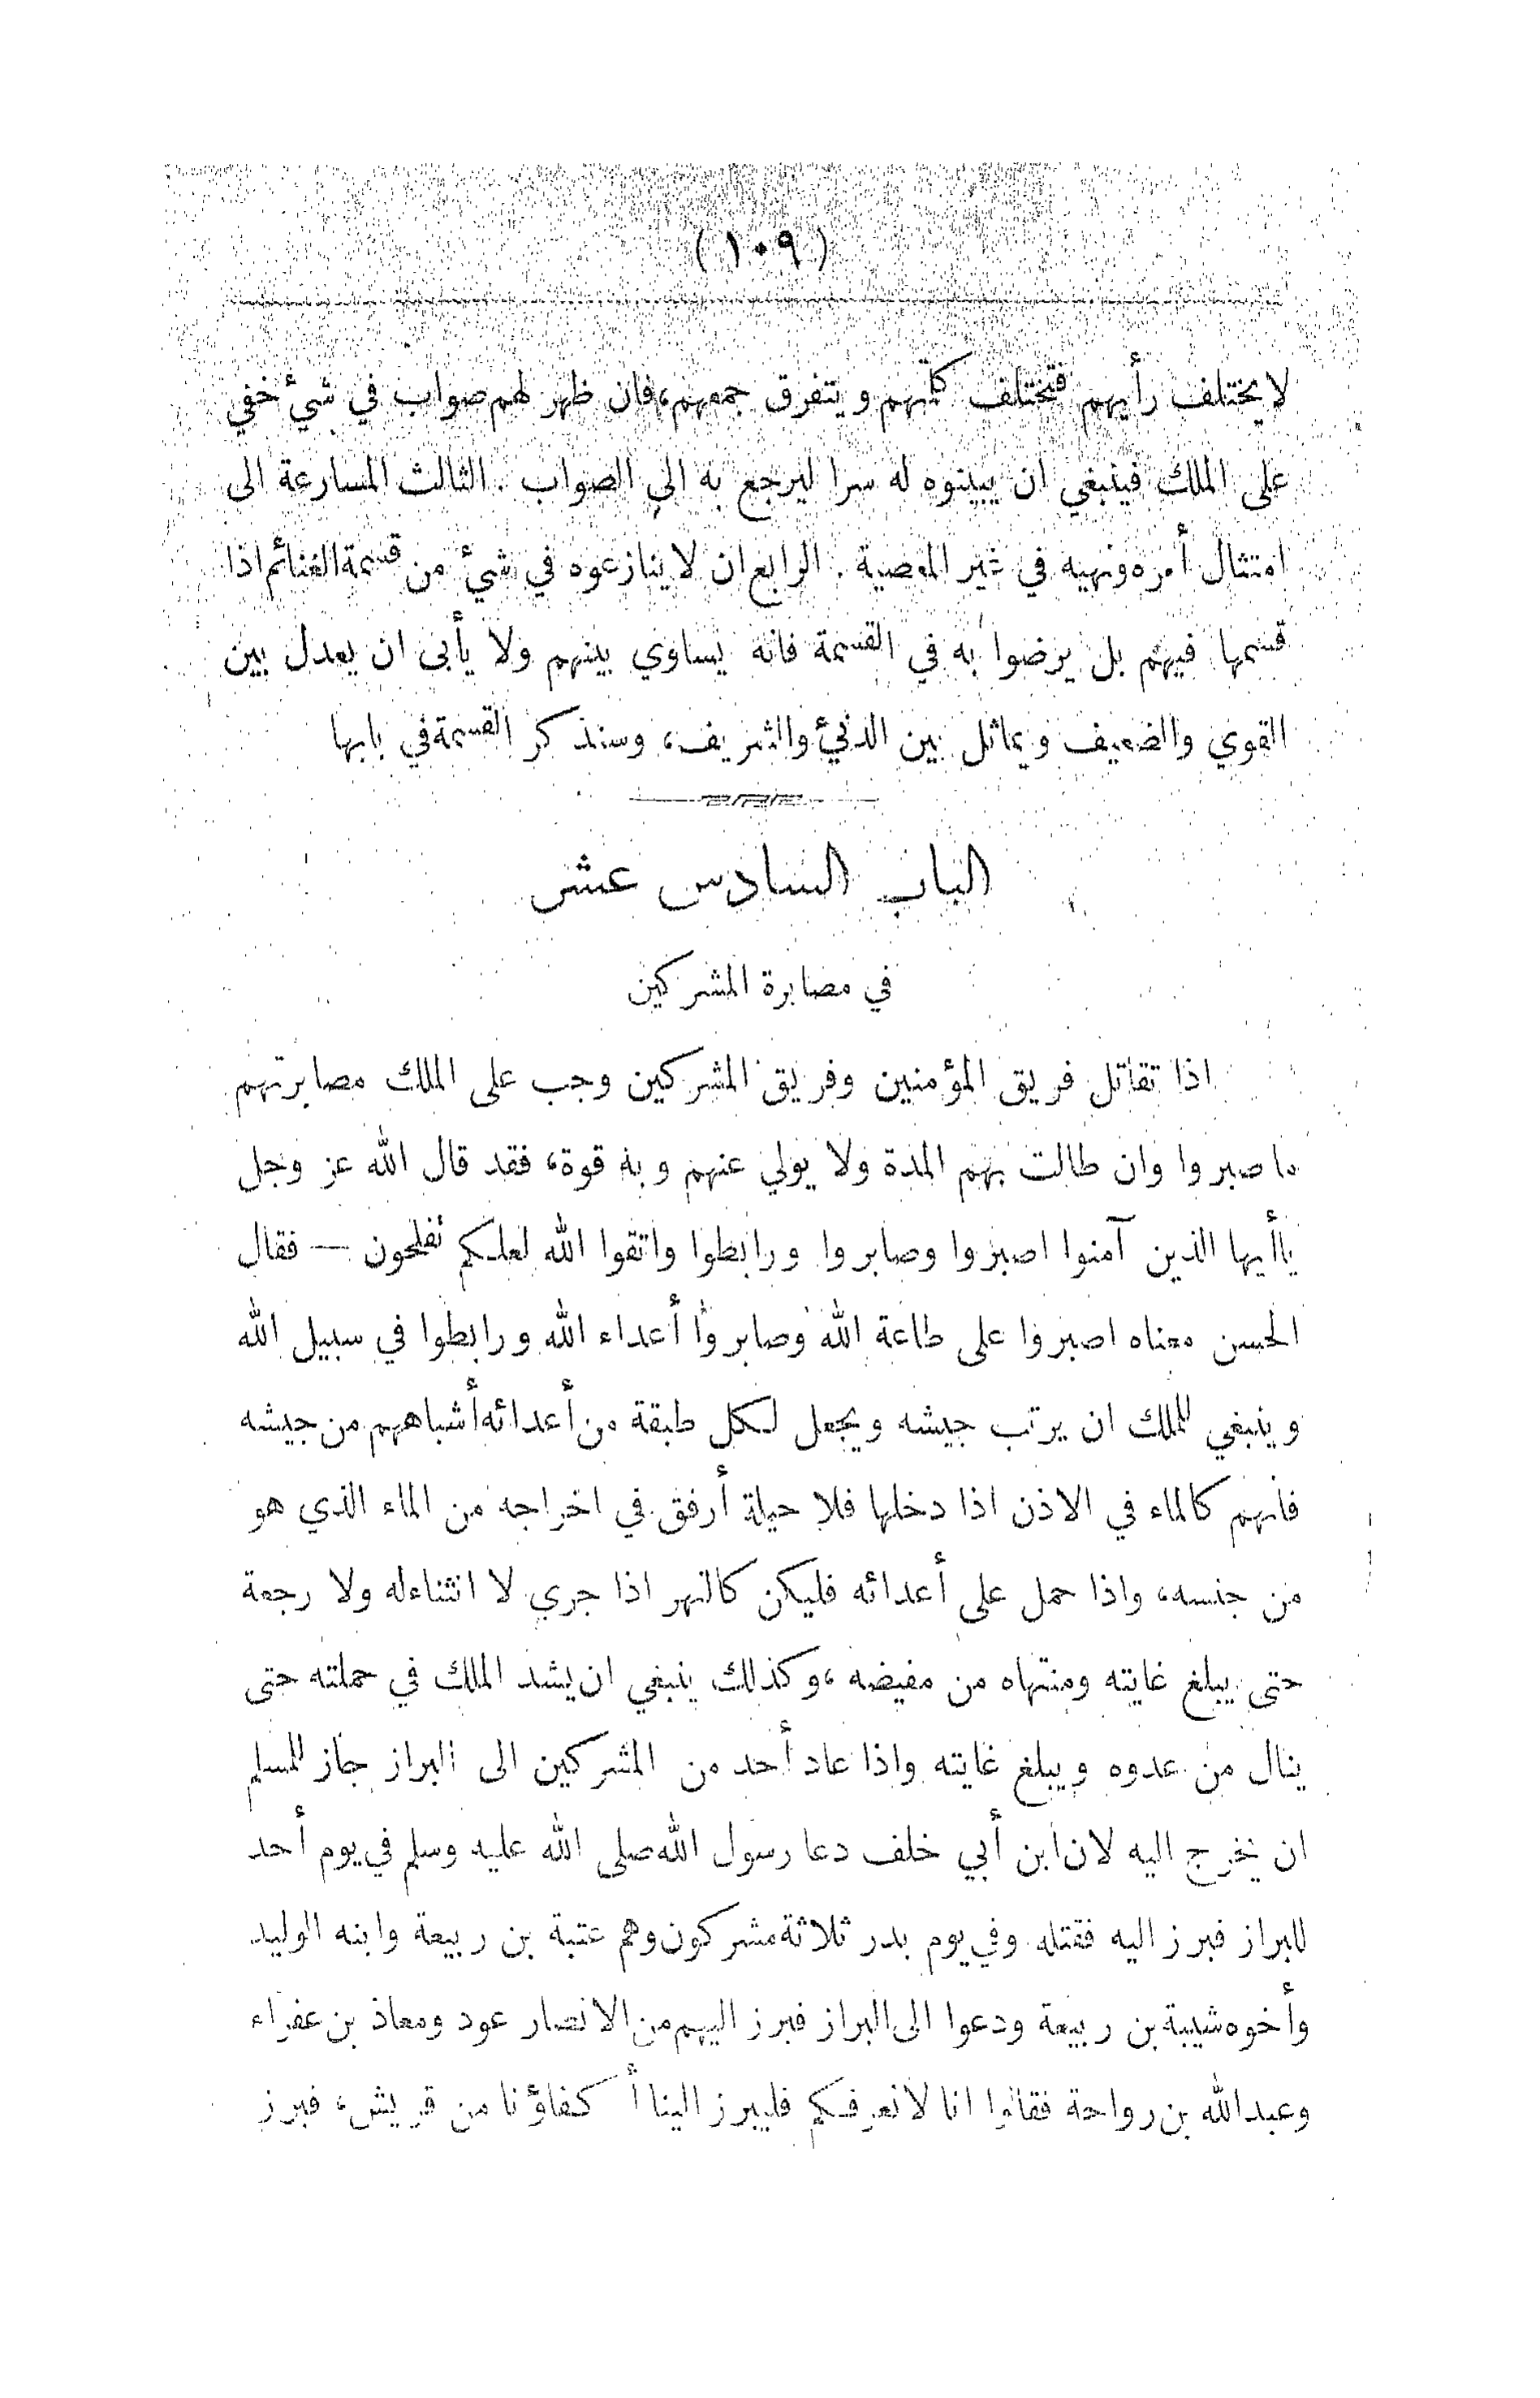 (١٠٩)
لا يختلف رأيهم فتختلف كلمتهم ويتفرق جمعهم، فان ظهر لهم صواب في شيء خفي
على الملك فينبغي ان يبينوه له سرا ليرجع به الى الصواب . الثالث المسارعة الى
امتثال أمره ونهيه في غير المعصية . الرابع ان لا ينازعوه في شيء من قسمة الغنائم اذا
قسمها فيهم بل يرضوا به في القسمة فانه يساوي بينهم ولا يأبى ان يعدل بين
القوي والضعيف ويماثل بين الدنيء والشريف، وسنذكر القسمة في بابها
الباب السادس عشر
في مصابرة المشركين
اذا تقاتل فريق المؤمنين وفريق المشركين وجب على الملك مصابرتهم
ما صبروا وان طالت بهم المدة ولا يولي عنهم وبه قوة، فقد قال الله عز وجل
يا أيها الذين آمنوا اصبروا وصابروا ورابطوا واتقوا الله لعلكم تفلحون — فقال
الحسن معناه اصبروا على طاعة الله وصابروا أعداء الله ورابطوا في سبيل الله
وينبغي للملك ان يرتب جيشه ويجعل لكل طبقة من أعدائه أشباههم من جيشه
فانهم كالماء في الاذن اذا دخلها فلا حيلة أرفق في اخراجه من الماء الذي هو
من جنسه، واذا حمل على أعدائه فليكن كالنهر اذا جري لا انثناء له ولا رجعة
حتى يبلغ غايته ومنتهاه من مفيضه، وكذلك ينبغي ان يشد الملك في حملته حتى
ينال من عدوه ويبلغ غايته واذا عاد أحد من المشركين الى البراز جاز للمسلم
ان يخرج اليه لان ابن أبي خلف دعا رسول الله صلى الله عليه وسلم في يوم أحد
للبراز فبرز اليه فقتله وفي يوم بدر ثلاثة مشركون وهم عتبة بن ربيعة وابنه الوليد
وأخوه شيبة بن ربيعة ودعوا الى البراز فبرز اليهم من الانصار عود ومعاذ بن عفراء
وعبد الله بن رواحة فقالوا انا لا نعرفكم فليبرز الينا أكفاؤنا من قريش، فبرز